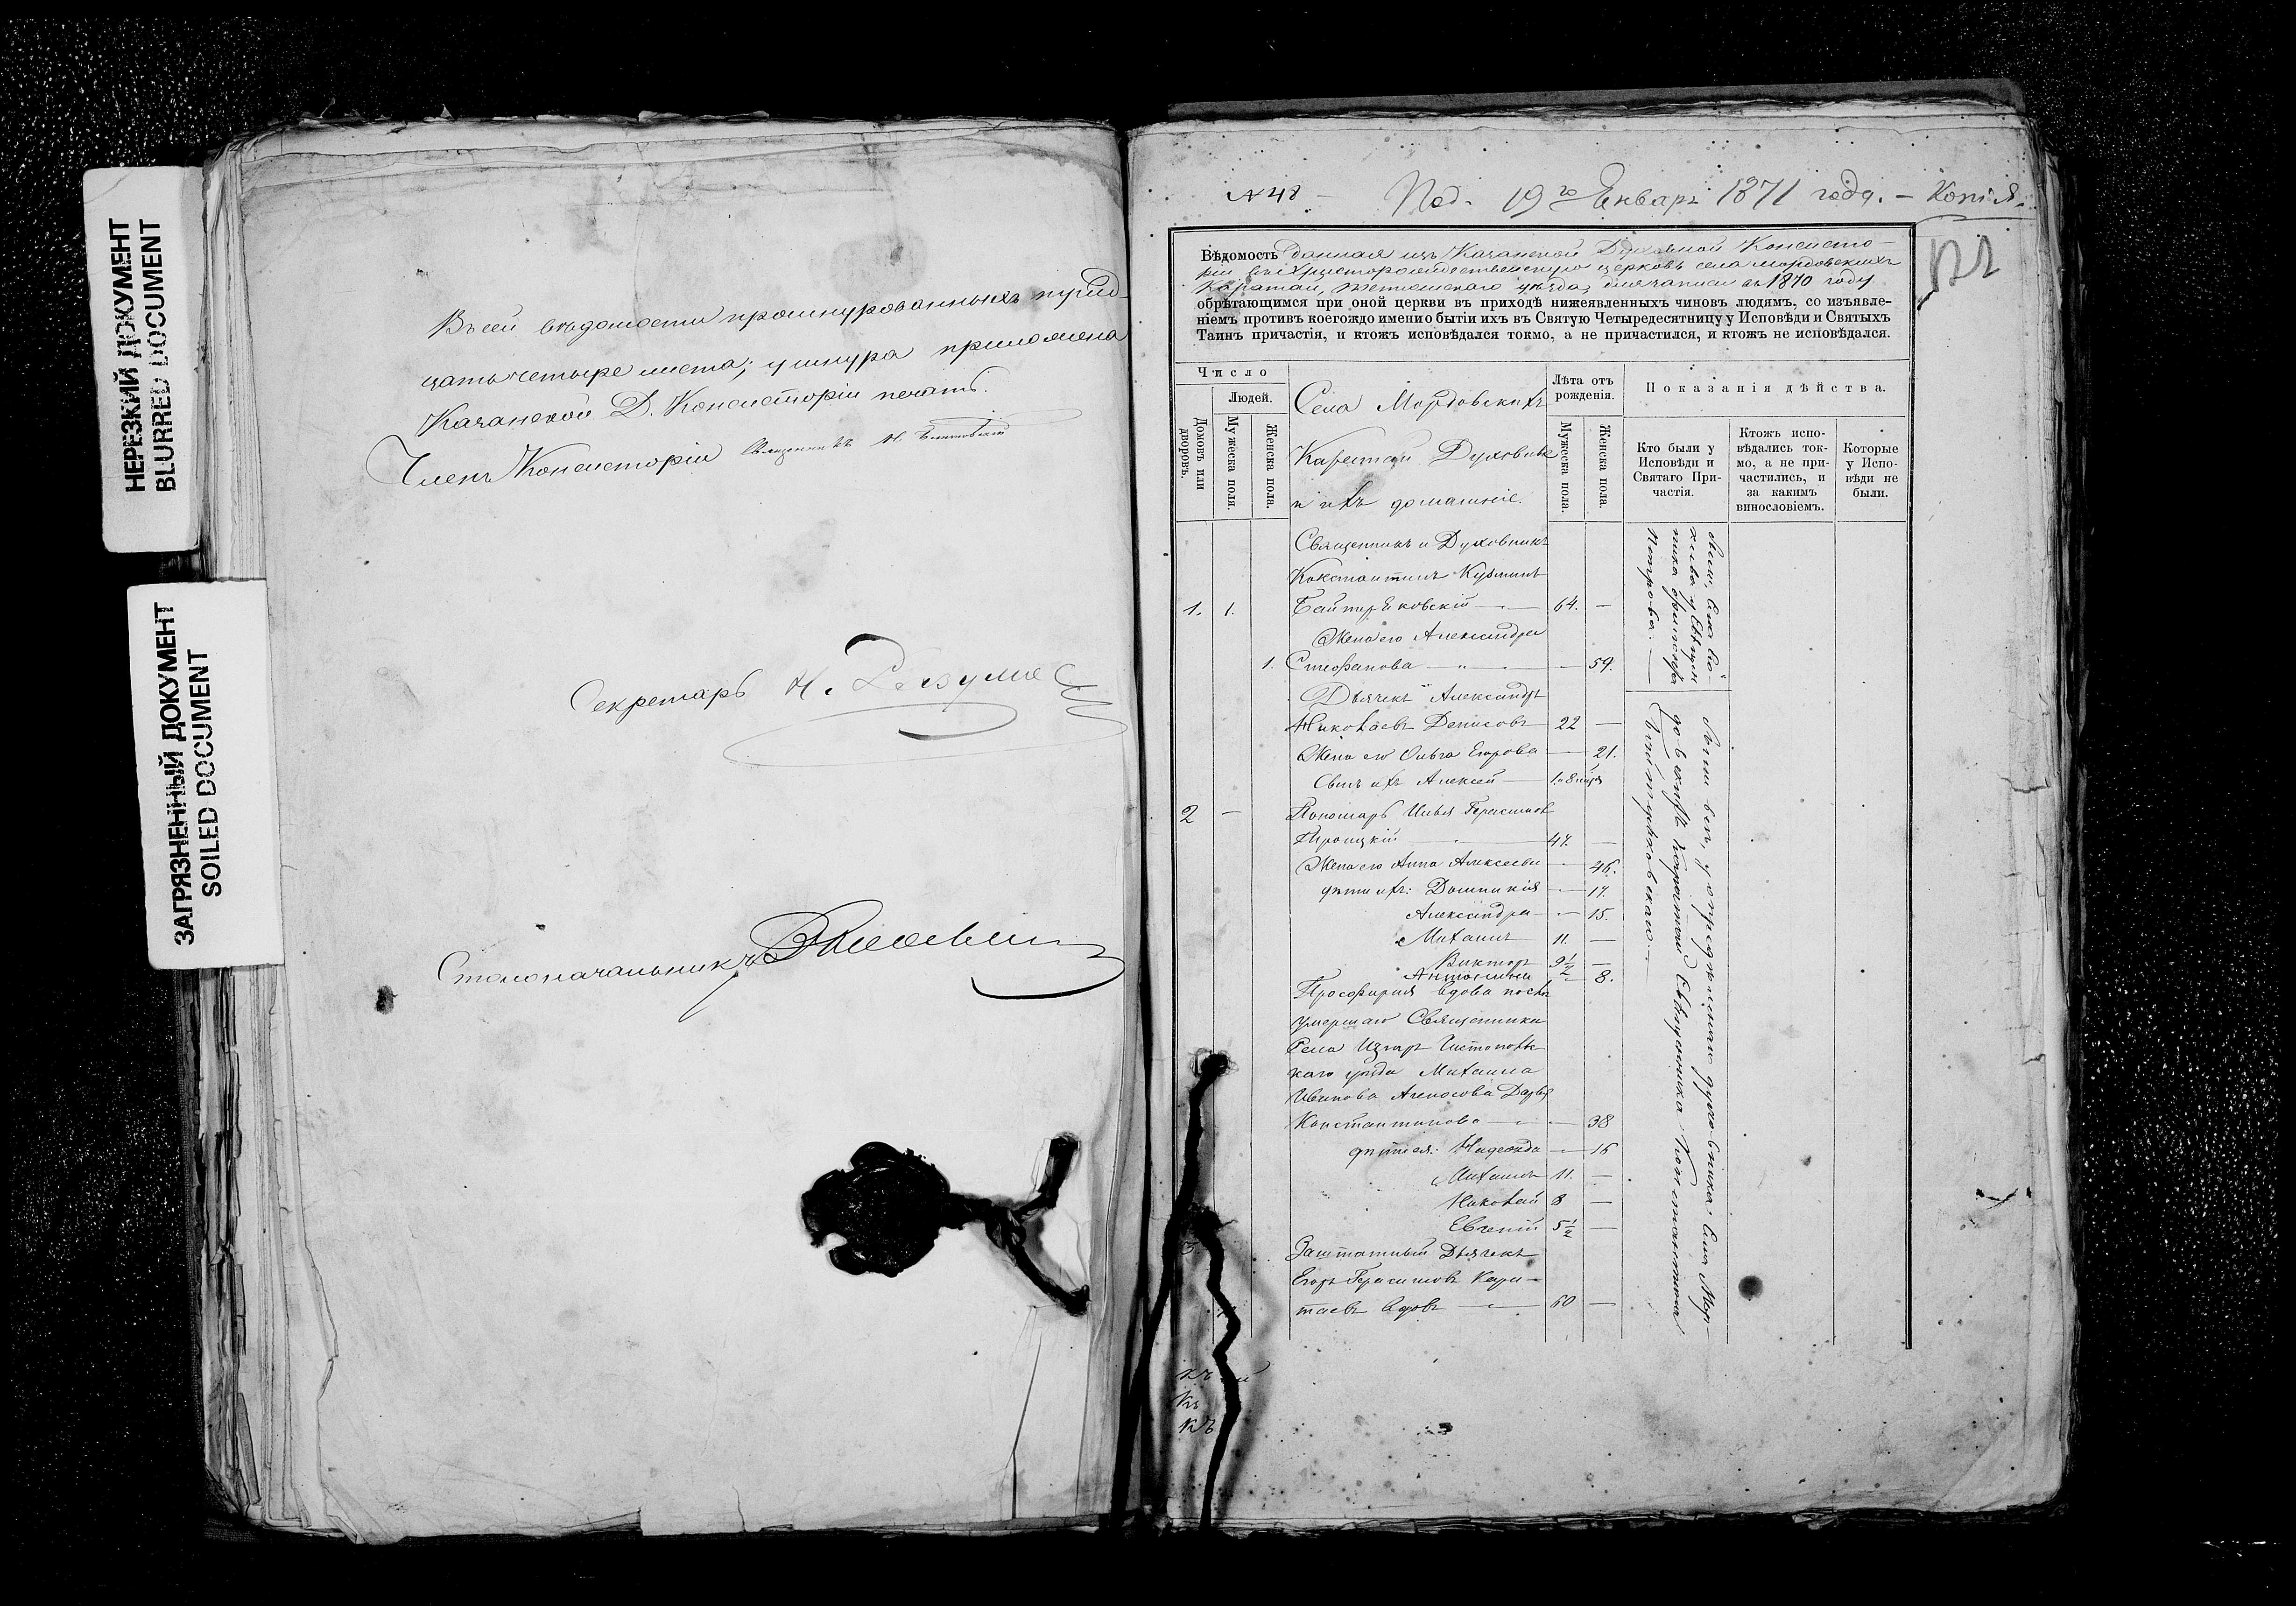 НЕРЕЗКИЙ ДОКУМЕНТ
BLURRED DOCUMENT
ЗАГРЯЗНЕННЫЙ ДОКУМЕНТ
SOILED DOCUMENT
Въ сей вѣдомости прошнурованныхъ трид-
цать четыре листа; у шнура приложена
Казанской Д. Консисторіи печать.
Членъ Консисторіи Священникъ Н.
Секретарь Н. Разумов
Столоначальникъ
№ 48 - Под. 19го Январь 1871 года. - Копія.
Вѣдомость данная изъ Казанской Духовной Консисто-
ріи въ Христорождественскую церковь села Мордовскихъ
Каратай, Тетюшскаго уѣзда, для записи въ 1870 году
обрѣтающимся при оной церкви въ приходѣ нижеявленныхъ чиновъ людямъ, со изъявле-
ніемъ противъ коегождо имени о бытіи ихъ въ Святую Четыредесятницу у Исповѣди и Святыхъ
Таинъ причастія, и ктожъ исповѣдался токмо, а не причастился, и ктожъ не исповѣдался.
Число
Домовъ или дворовъ.
Людей.
Мужеска поля.
Женска пола.
Села Мордовскихъ
Каратай Духовные
и ихъ домашніе.
Лѣта отъ
рожденія.
Мужеска пола.
Женска пола.
Показанія дѣйства.
Кто были у
Исповѣди и
Святаго При-
частія.
Ктожъ испо-
вѣдались ток-
мо, а не при-
частились, и
за какимъ
винословіемъ.
Которые
у Испо-
вѣди не
были.
Священникъ и Духовникъ
Константинъ Кузминъ
1. 1. Байтеряковскій 64. —
Жена его Александра
1. Стефанова — 59.
Дьячекъ Александръ
Николаевъ Денисовъ 22 —
Жена его Ольга Егорова — 21.
Сынъ ихъ Алексей 1. и 8 мцв
2 — Пономарь Илья Герасимовъ
Троицкій 47. —
Жена его Анна Алексеева — 46.
дѣти ихъ: Домникія — 17.
Александра — 15.
Михаилъ 11. —
Викторъ 9½ —
Антонина — 8.
Просфирня вдова послѣ
умершаго Священника
Села Изгаръ Чистополь-
скаго уѣзда Михаила
Иванова Дарья
Константинова — 38
дѣти ея: Надежда — 16
Михаилъ 11. —
Николай 8 —
Евгеній 5½ —
3. Заштатный Дьячекъ
Егоръ Герасимовъ Кара-
таевъ вдовъ 60 —
Священника Константина
Байтеряковскаго.
къ
къ
къ